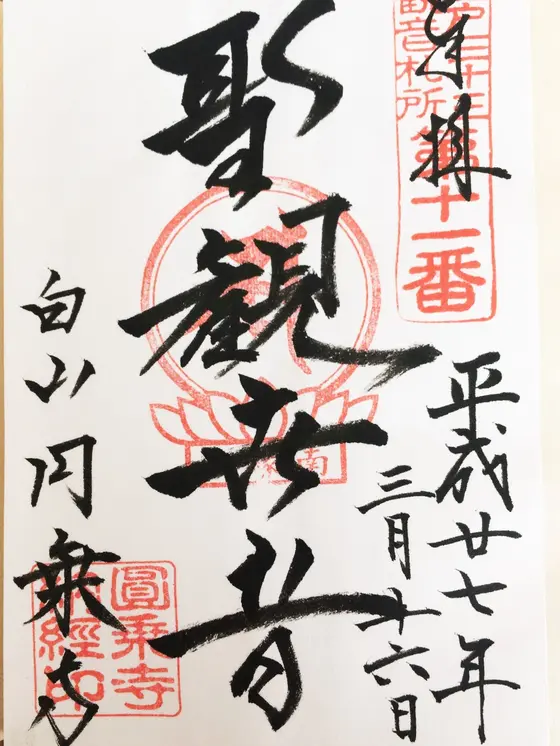 奉拝
三十三
観音札所
第十一番
平成廿七年
三月十六日
聖観世音
白山円乗寺
圓乗寺
納經印